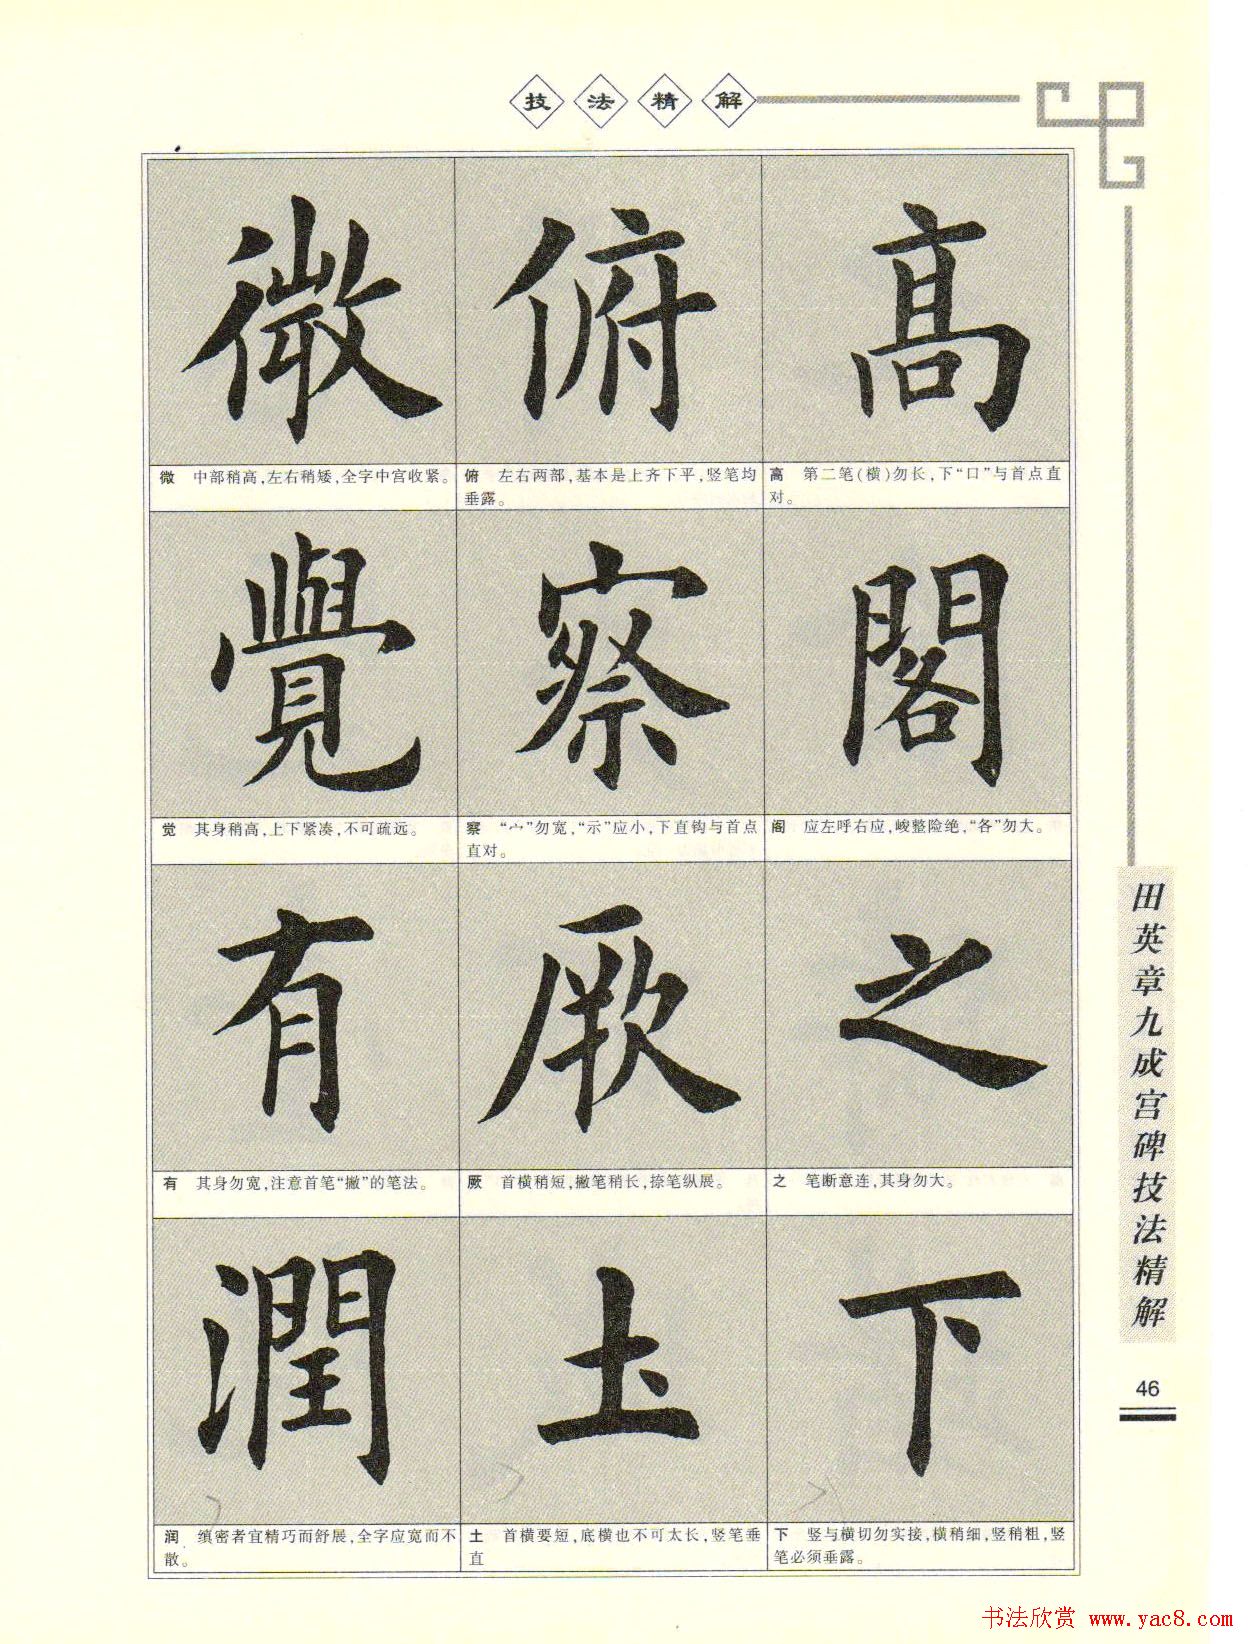 技法精解
微 俯 高
微 中部稍高,左右稍矮,全字中宫收紧。
俯 左右两部,基本是上齐下平,竖笔均
垂露。
高 第二笔(横)勿长,下“口”与首点直
对。
覺 察 閣
觉 其身稍高,上下紧凑,不可疏远。
察 “宀”勿宽,“示”应小,下直钩与首点
直对。
阁 应左呼右应,峻整险绝,“各”勿大。
有 厥 之
有 其身勿宽,注意首笔“撇”的笔法。
厥 首横稍短,撇笔稍长,捺笔纵展。
之 笔断意连,其身勿大。
潤 土 下
润 缜密者宜精巧而舒展,全字应宽而不
散。
土 首横要短,底横也不可太长,竖笔垂
直
下 竖与横切勿实接,横稍细,竖稍粗,竖
笔必须垂露。
田英章九成宫碑技法精解
46
书法欣赏 www.yac8.com